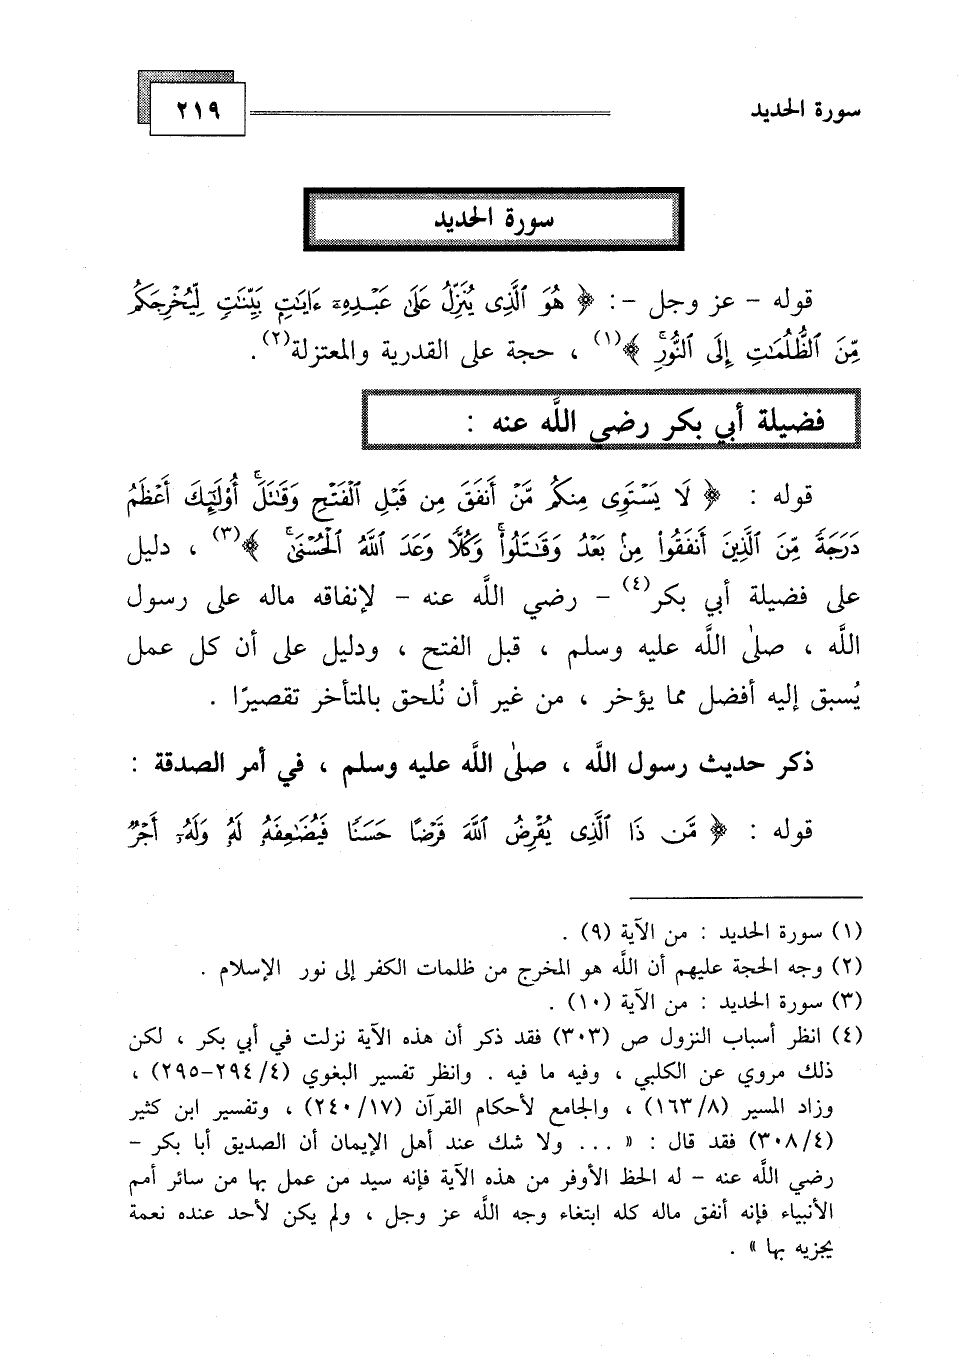 سورة الحديد
٢١٩
سورة الحديد
قوله - عز وجل -: ﴿ هُوَ ٱلَّذِى يُنَزِّلُ عَلَىٰ عَبْدِهِۦٓ ءَايَٰتٍۭ بَيِّنَٰتٍ لِّيُخْرِجَكُم
مِّنَ ٱلظُّلُمَٰتِ إِلَى ٱلنُّورِ ۚ ﴾(١) ، حجة على القدرية والمعتزلة(٢).
فضيلة أبي بكر رضي اللَّه عنه :
قوله : ﴿ لَا يَسْتَوِى مِنكُم مَّنْ أَنفَقَ مِن قَبْلِ ٱلْفَتْحِ وَقَٰتَلَ ۚ أُو۟لَٰٓئِكَ أَعْظَمُ
دَرَجَةً مِّنَ ٱلَّذِينَ أَنفَقُوا۟ مِنۢ بَعْدُ وَقَٰتَلُوا۟ ۚ وَكُلًّا وَعَدَ ٱللَّهُ ٱلْحُسْنَىٰ ۚ ﴾(٣) ، دليل
على فضيلة أبي بكر(٤) - رضي اللَّه عنه - لإنفاقه ماله على رسول
اللَّه ، صلىٰ اللَّه عليه وسلم ، قبل الفتح ، ودليل على أن كل عمل
يُسبق إليه أفضل مما يؤخر ، من غير أن نُلحق بالمتأخر تقصيرًا .
ذكر حديث رسول اللَّه ، صلىٰ اللَّه عليه وسلم ، في أمر الصدقة :
قوله : ﴿ مَّن ذَا ٱلَّذِى يُقْرِضُ ٱللَّهَ قَرْضًا حَسَنًا فَيُضَٰعِفَهُۥ لَهُۥ وَلَهُۥٓ أَجْرٌ
(١) سورة الحديد : من الآية (٩) .
(٢) وجه الحجة عليهم أن اللَّه هو المخرج من ظلمات الكفر إلى نور الإسلام .
(٣) سورة الحديد : من الآية (١٠) .
(٤) انظر أسباب النزول ص (٣٠٣) فقد ذكر أن هذه الآية نزلت في أبي بكر ، لكن
ذلك مروي عن الكلبي ، وفيه ما فيه . وانظر تفسير البغوي (٤/ ٢٩٤-٢٩٥) ،
وزاد المسير (٨/ ١٦٣) ، والجامع لأحكام القرآن (١٧/ ٢٤٠) ، وتفسير ابن كثير
(٤/ ٣٠٨) فقد قال : « ... ولا شك عند أهل الإيمان أن الصديق أبا بكر -
رضي اللَّه عنه - له الحظ الأوفر من هذه الآية فإنه سيد من عمل بها من سائر أمم
الأنبياء فإنه أنفق ماله كله ابتغاء وجه اللَّه عز وجل ، ولم يكن لأحد عنده نعمة
يجزيه بها » .